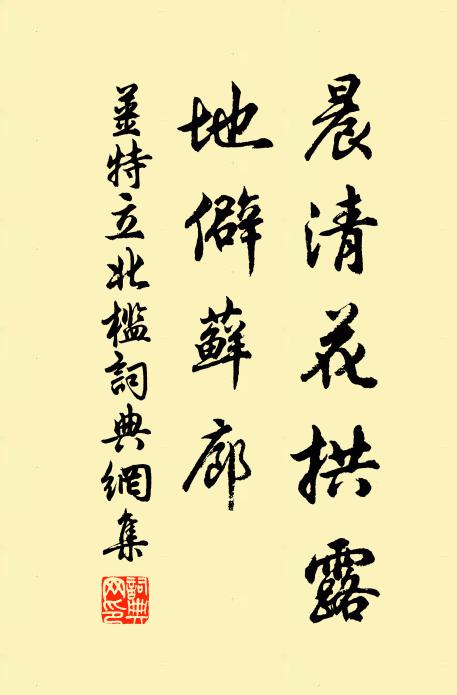 晨清花拱露
地僻蘚廊
姜特立北檻詞典網集
詞典网印